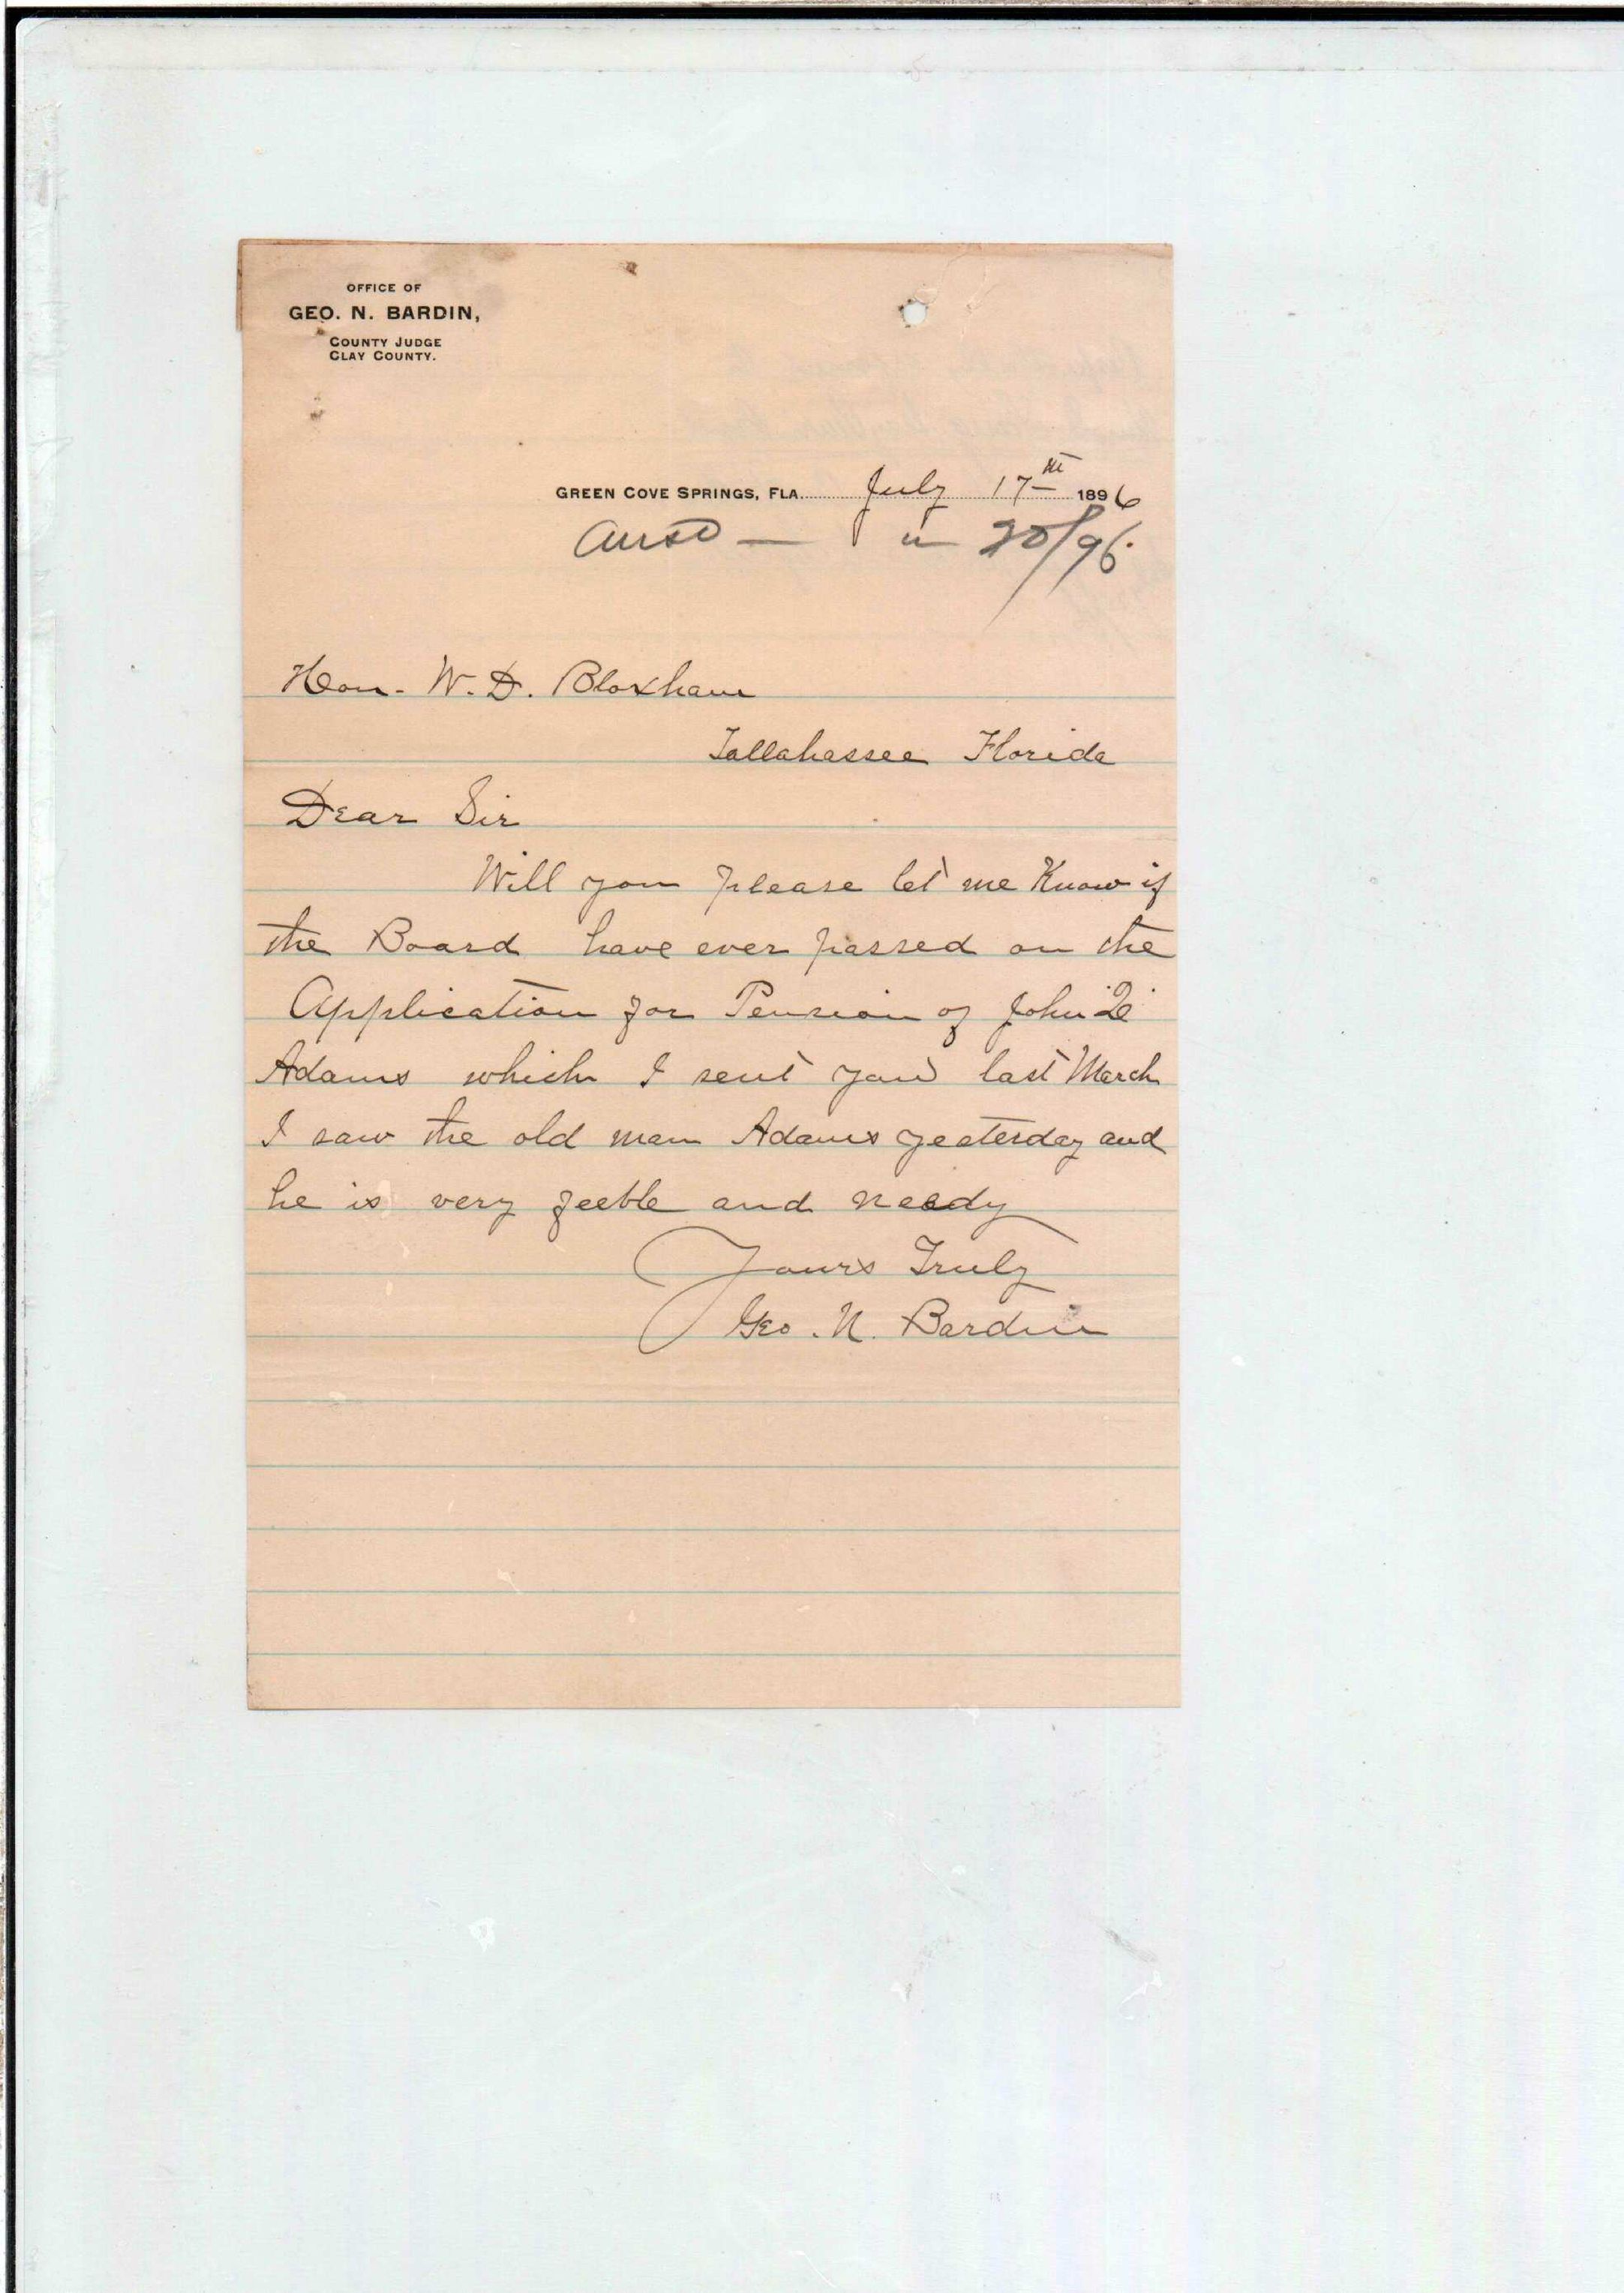 OFFICE OF
GEO. N. BARDIN,
COUNTY JUDGE
CLAY COUNTY.
GREEN COVE SPRINGS, FLA. July 17th 1896
Ansd — " 20/96.
Hon. W. D. Bloxham
Tallahassee Florida
Dear Sir
Will you please let me Know if
the Board have ever passed on the
Application for Pension of John
Adams which I sent you last March
I saw the old man Adams yesterday and
he is very feeble and needy
Yours Truly
Geo. N. Bardin